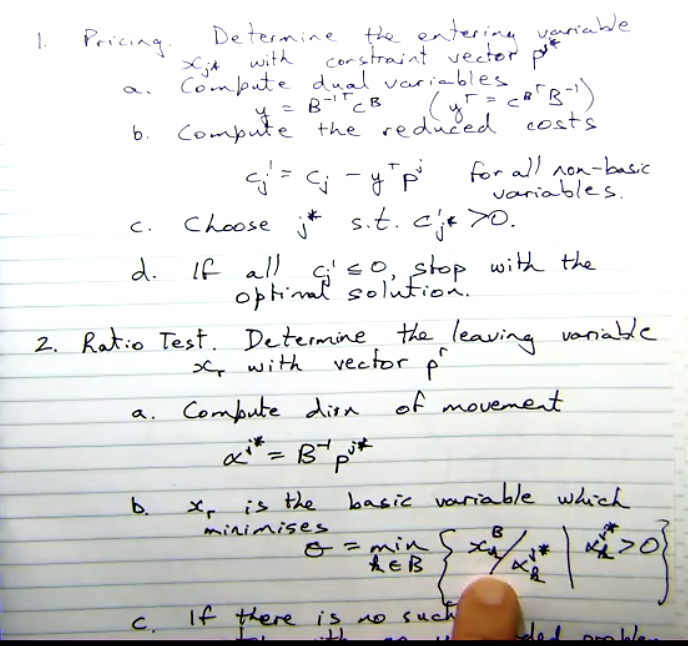 1. Pricing. Determine the entering variable
x_{j*} with constraint vector p^{j*}
a. Compute dual variables
y = B^{-1T} c^B (y^T = c^{BT} B^{-1})
b. Compute the reduced costs
c_j' = c_j - y^T p^j for all non-basic
variables.
c. Choose j* s.t. c'_{j*} > 0.
d. If all c_j' ≤ 0, stop with the
optimal solution.
2. Ratio Test. Determine the leaving variable
x_r with vector p^r
a. Compute dirn of movement
α^{j*} = B^{-1} p^{j*}
b. x_r is the basic variable which
minimises
θ = min_{k∈B} { x_k^B / α_k^{j*} | α_k^{j*} > 0 }
c. If there is no such